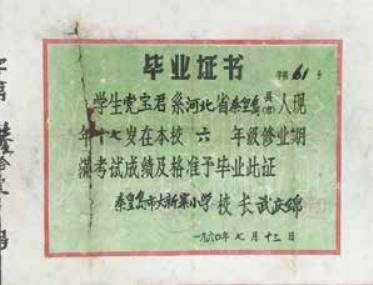 毕业证书
字第 61 号
学生党宝君系河北省秦皇岛县(市)人现
年十七岁在本校 六 年级修业期
满考试成绩及格准予毕业此证
秦皇岛市大新寨小学 校长 武庆绵
一九六〇年 七 月 十三 日
字第